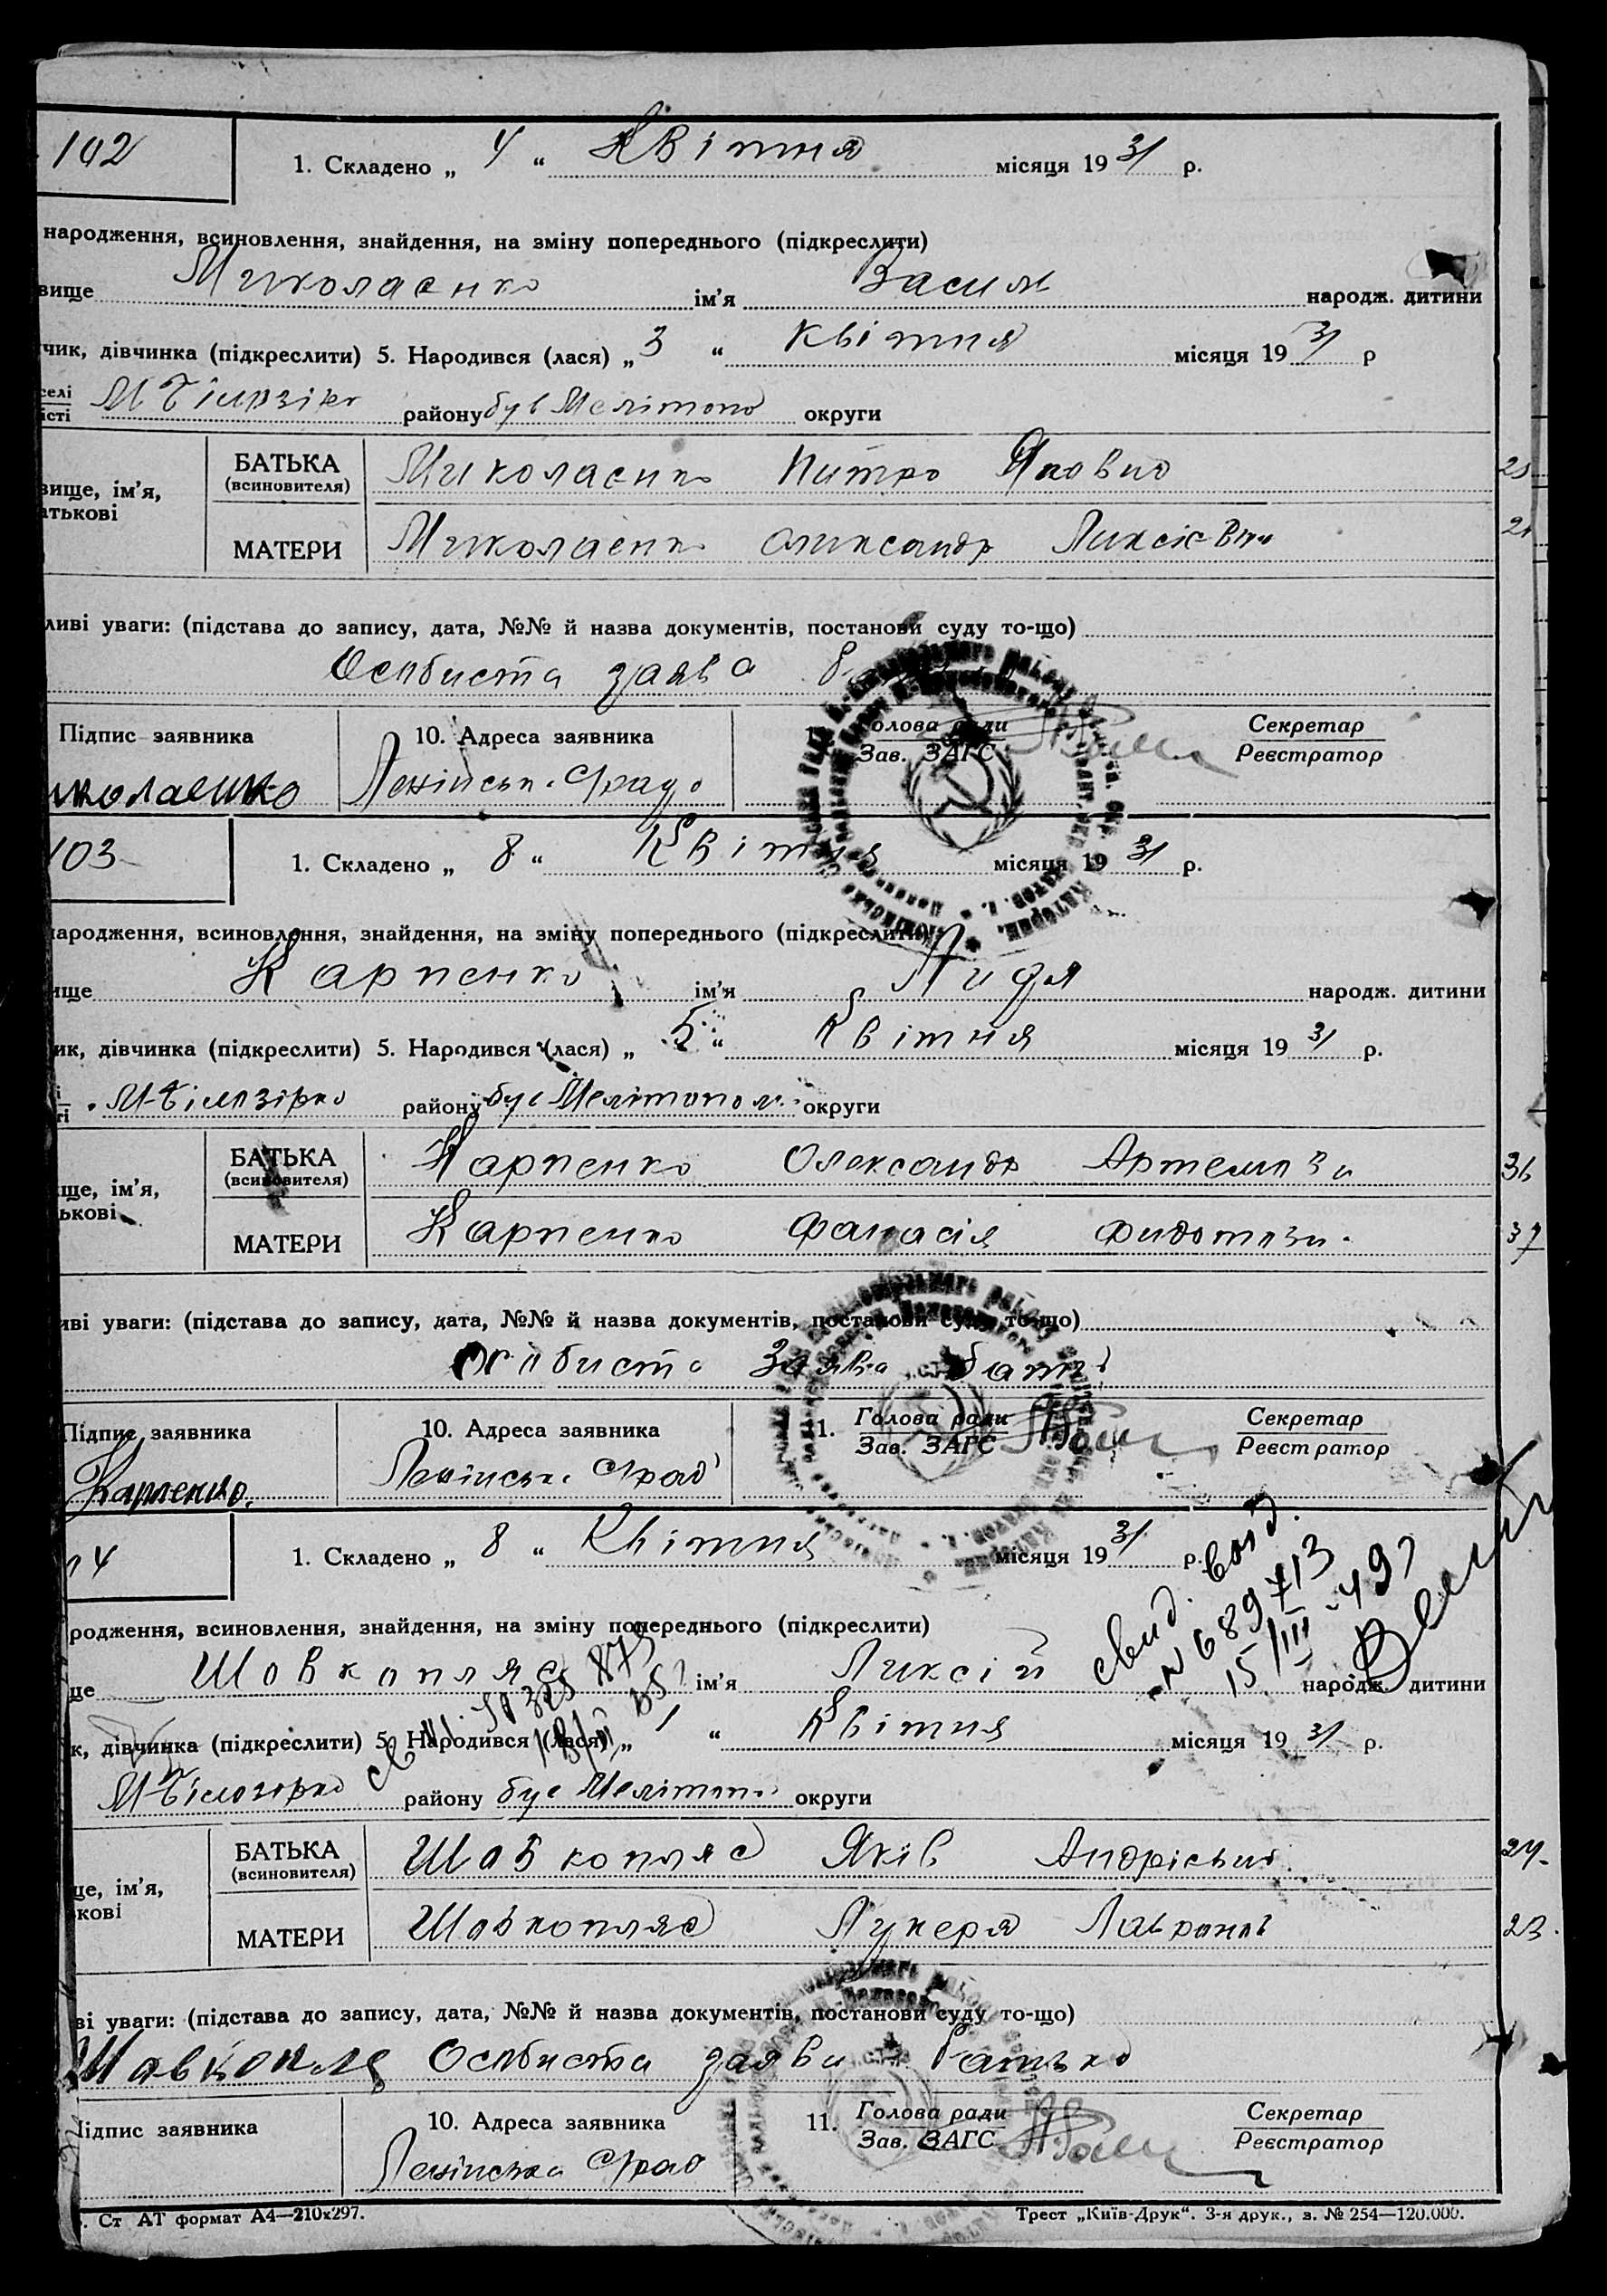 102
1. Складено „ 4 “ Квітня місяця 19 31 р.
народження, всиновлення, знайдення, на зміну попереднього (підкреслити)
вище Миколаєнко ім'я Василь народж. дитини
чик, дівчинка (підкреслити) 5. Народився (лася) „ 3 “ Квітня місяця 19 31 р
селі
істі
району був Меліtопо округи
БАТЬКА
(всиновителя)
Миколаєнко Питро Якович
вище, ім'я,
атькові
МАТЕРИ Миколаєнко Олександр
ливі уваги: (підстава до запису, дата, №№ й назва документів, постанови суду то-що)
Особиста заява
Підпис заявника
10. Адреса заявника
Голова ради
Зав. ЗАГС
Секретар
Реєстратор
иколаєнко
103
1. Складено „ 8 “ Квітня місяця 19 31 р.
народження, всиновлення, знайдення, на зміну попереднього (підкреслити)
ище Карпенко ім'я Лидя народж. дитини
ик, дівчинка (підкреслити) 5. Народився (лася) „ 5 “ Квітня місяця 19 31 р.
М-Білозірко району був Мелітопол. округи
БАТЬКА
(всиновителя)
Карпенко Олександр Артемови
36
ище, ім'я,
ькові
МАТЕРИ Карпенко Фанасія Фидотовн.
37
иві уваги: (підстава до запису, дата, №№ й назва документів, постанови суду то-що)
Особиста Заява бать
Підпис заявника
10. Адреса заявника
11. Голова ради
Зав. ЗАГС
Секретар
Реєстратор
Карпенко.
Ленінськ. Срад
04
1. Складено „ 8 “ Квітня місяця 19 31 р.
свид. возд.
N 689713
15/III-497
родження, всиновлення, знайдення, на зміну попереднього (підкреслити)
ще Шовкопляс ім'я Ликсій народж. дитини
к, дівчинка (підкреслити) 5. Народився (лася) „ 1 “ Квітня місяця 19 31 р.
М-Білозірко району був Мелітопо округи
БАТЬКА
(всиновителя)
Шовкопляс Яків Андрієвич.
24.
ще, ім'я,
ькові
МАТЕРИ Шовкопляс Лукеря Лавронов
23.
ві уваги: (підстава до запису, дата, №№ й назва документів, постанови суду то-що)
Шавкопляс Особиста заява батько
Підпис заявника
10. Адреса заявника
11. Голова ради
Зав. ЗАГС
Секретар
Реєстратор
Ленінська Срад
. Ст АТ формат А4—210х297.
Трест „Київ-Друк“. 3-я друк., з. № 254—120.000.